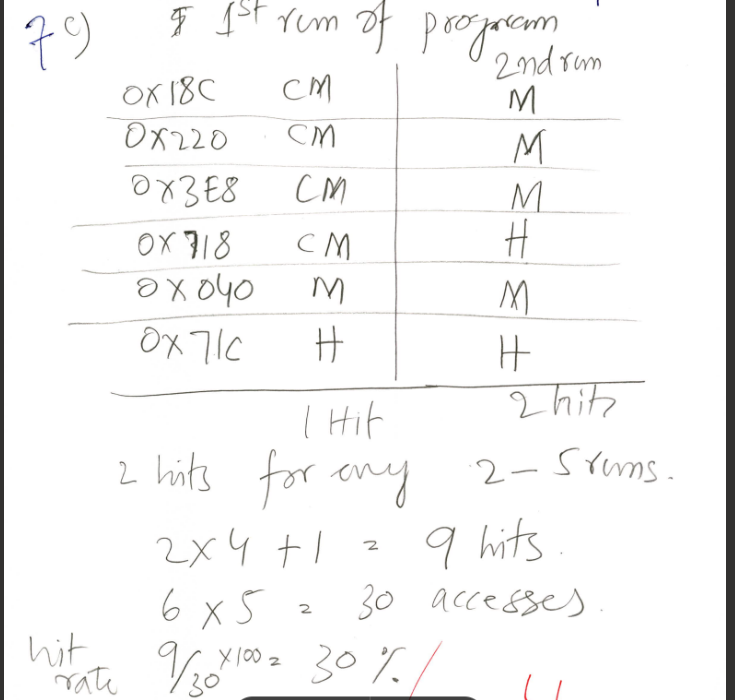 7c) 1st run of program
2nd run
0x18C CM M
0x220 CM M
0x3E8 CM M
0x718 CM H
0x040 M M
0x71C H H
1 Hit 2 hits
2 hits for any 2-5 runs.
2x4+1 = 9 hits.
6x5 = 30 accesses.
hit rate 9/30 x100 = 30%